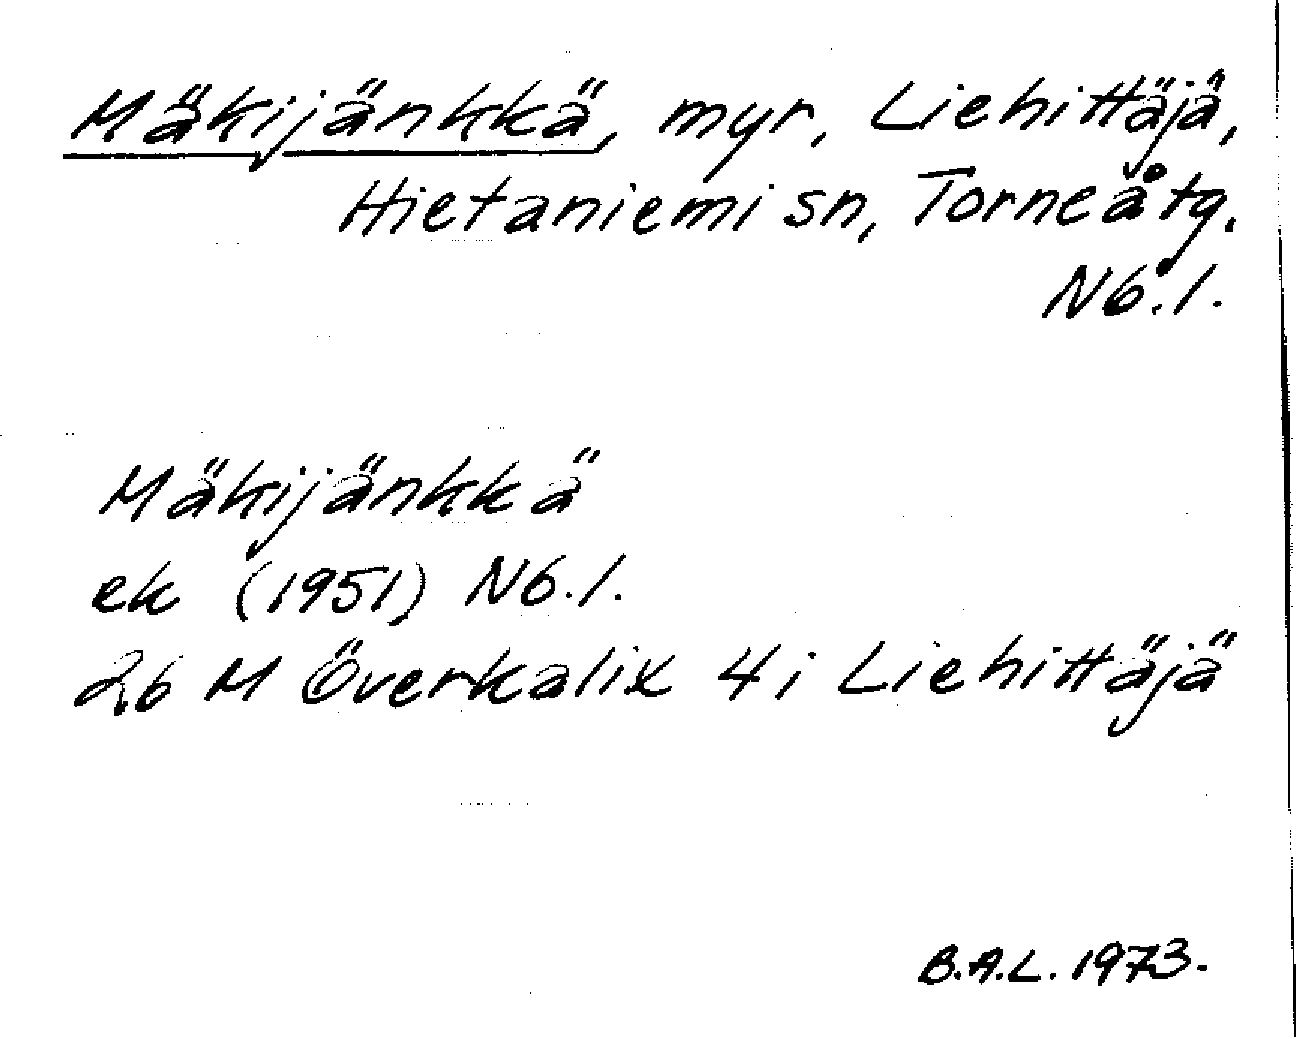 Mäkijänkkä, myr, Liehittäjä,
Hietaniemi sn, Torneå tg.
Nb.l.
Mäkijänkkä
ek (1951) Nb.l.
26 M Överkalix 4 i Liehittäjä
B.A.L. 1973.